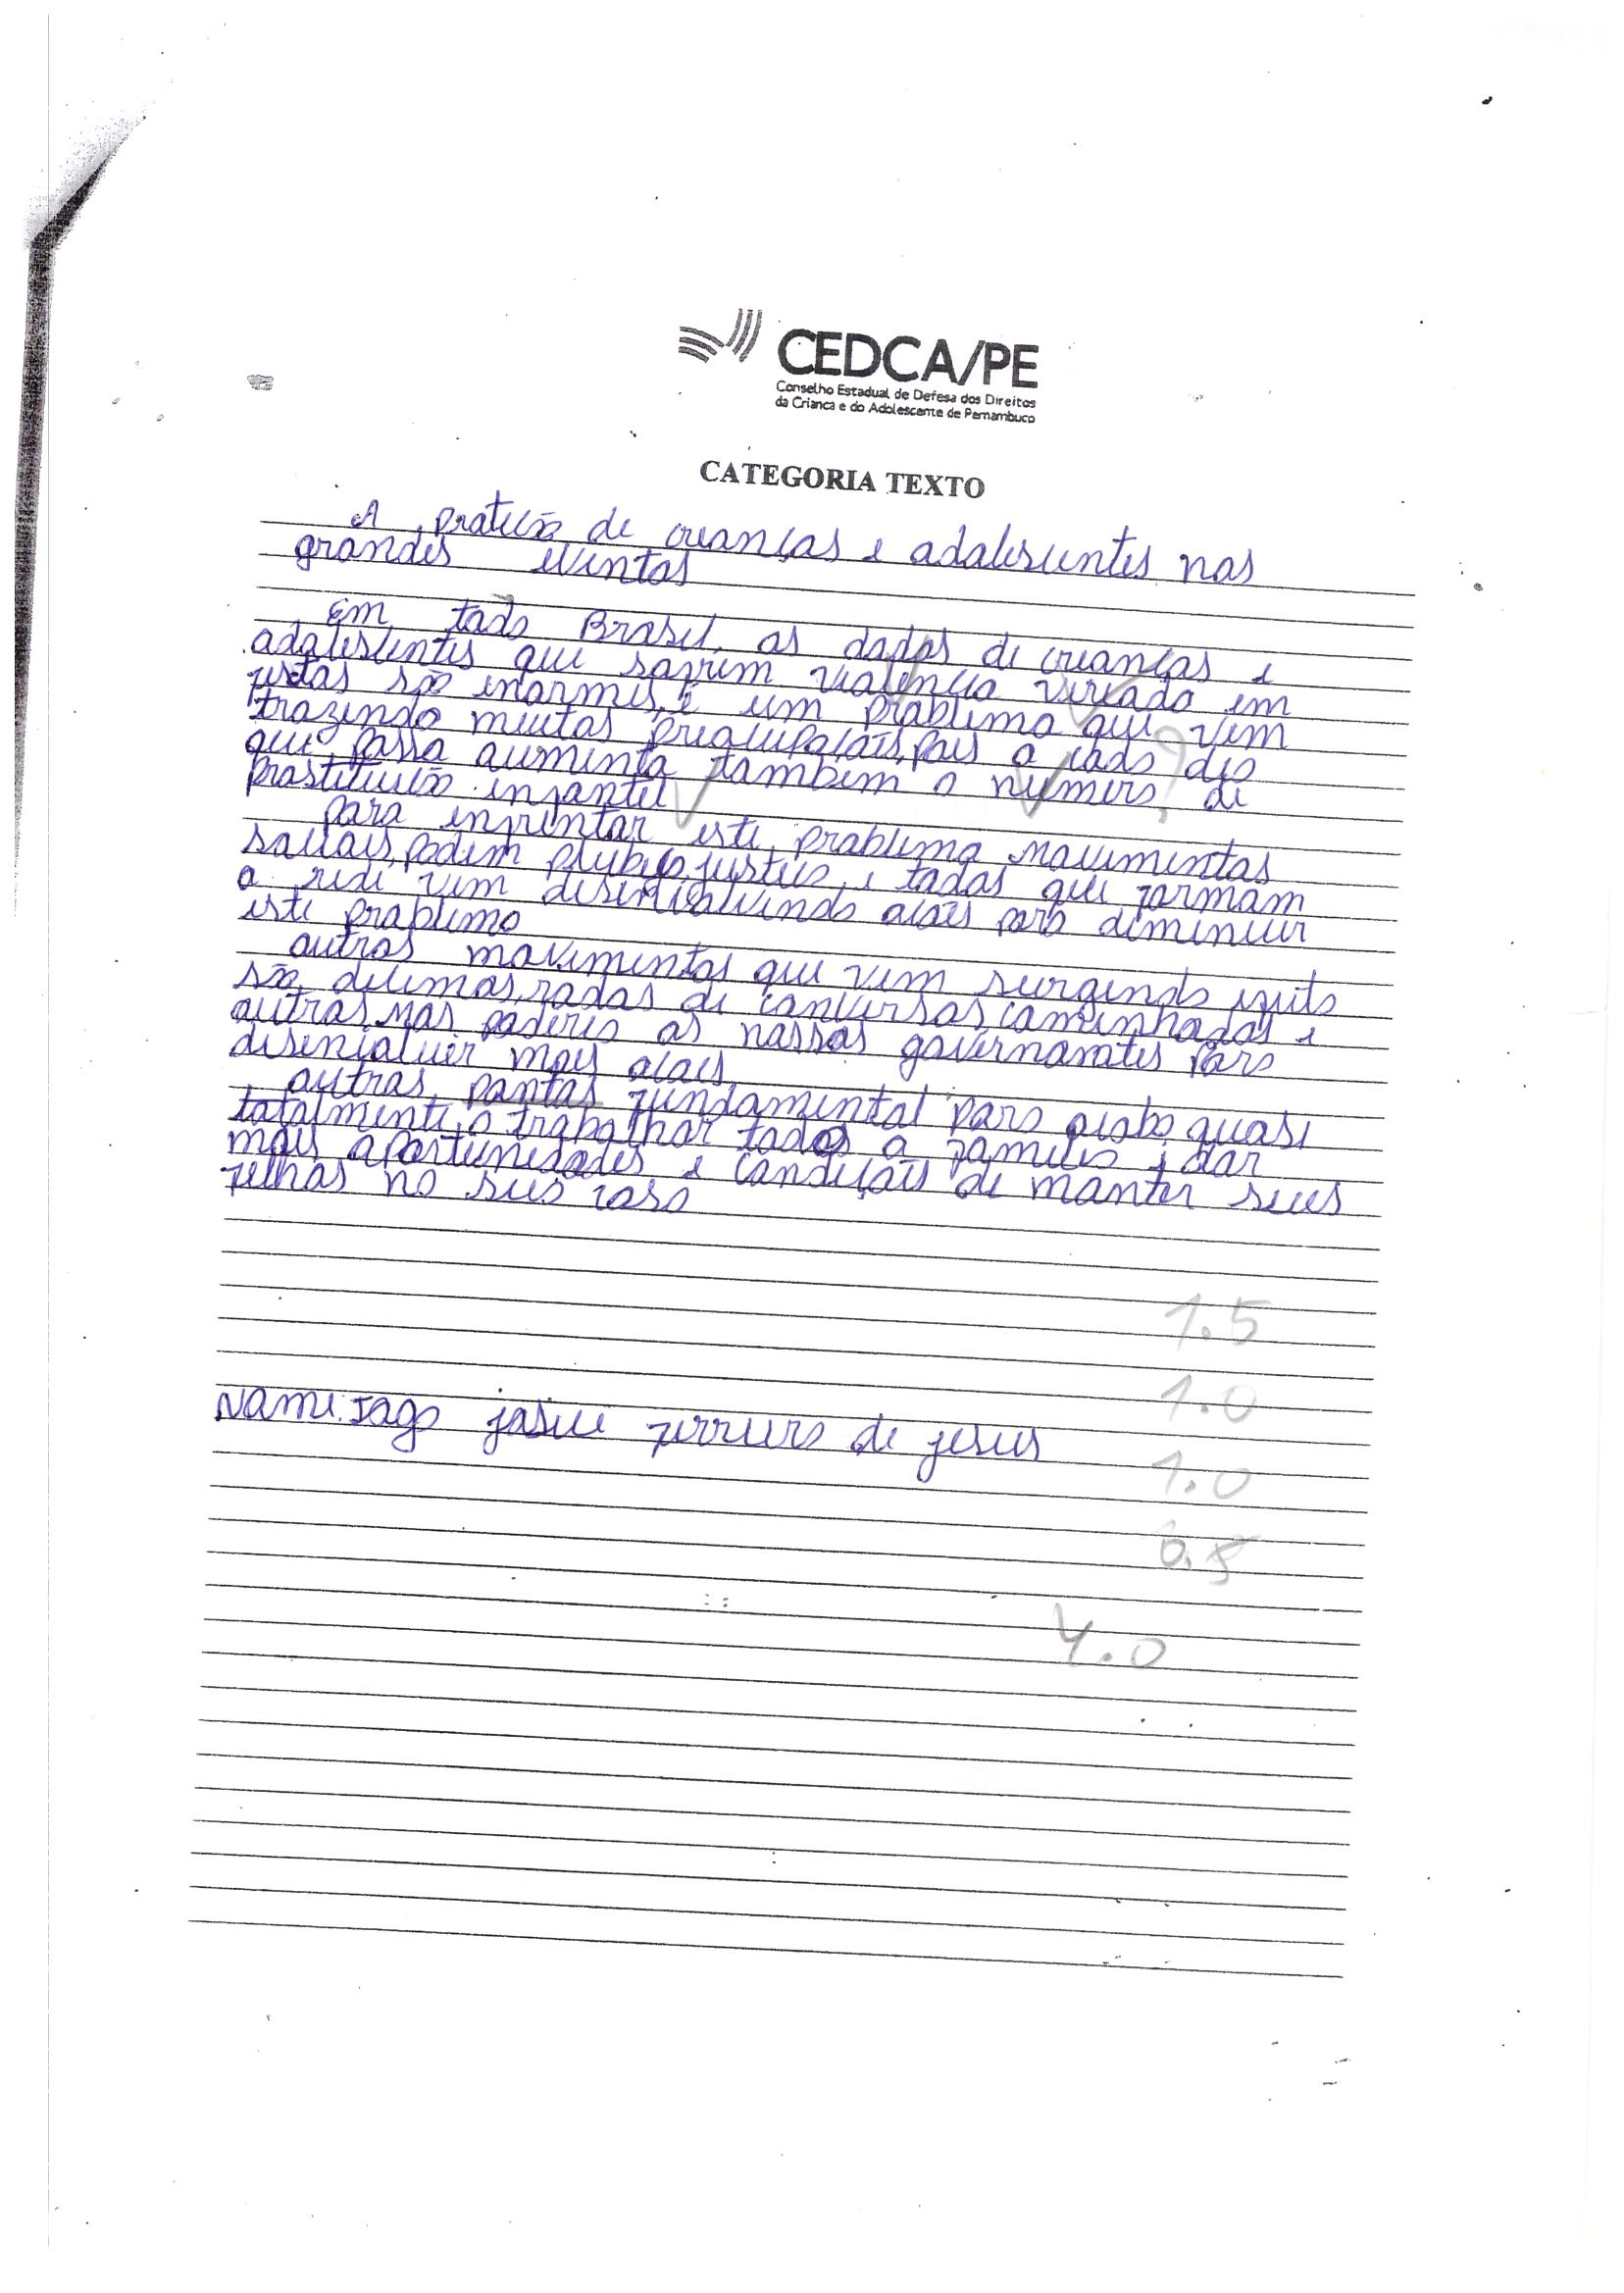 CEDCA/PE
Conselho Estadual de Defesa dos Direitos
da Crianca e do Adolescente de Pernambuco
CATEGORIA TEXTO
A proteção de crianças e adolescentes nos
grandes eventos
Em todo Brasil, os dados de crianças e
adolescentes que sofrem violencia vereado em
festas são enormes, é um problema que vem
trazendo muitas preocupações, pois a cada dia
que passa aumenta também o numero de
prostituição infantil
para enfrentar este problema movimentos
sociais, podem plubico, justiça e todos que formam
a rede vem desenvolvendo ações para diminuir
este problema
outros movimentos que vem surgindo efeito
são, rodas de conversas, caminhadas e
outras, mas poderia os nossos governanates para
desenvolver mais ações
outros pontos fundamental para acaba quase
totalmente, é trabalhar todos a familia e dar
mais aportunidades e condições de manter seus
filhos na sua casa
Nome: Iago josue ferreira de jesus
1.5
1.0
1.0
0.5
4.0